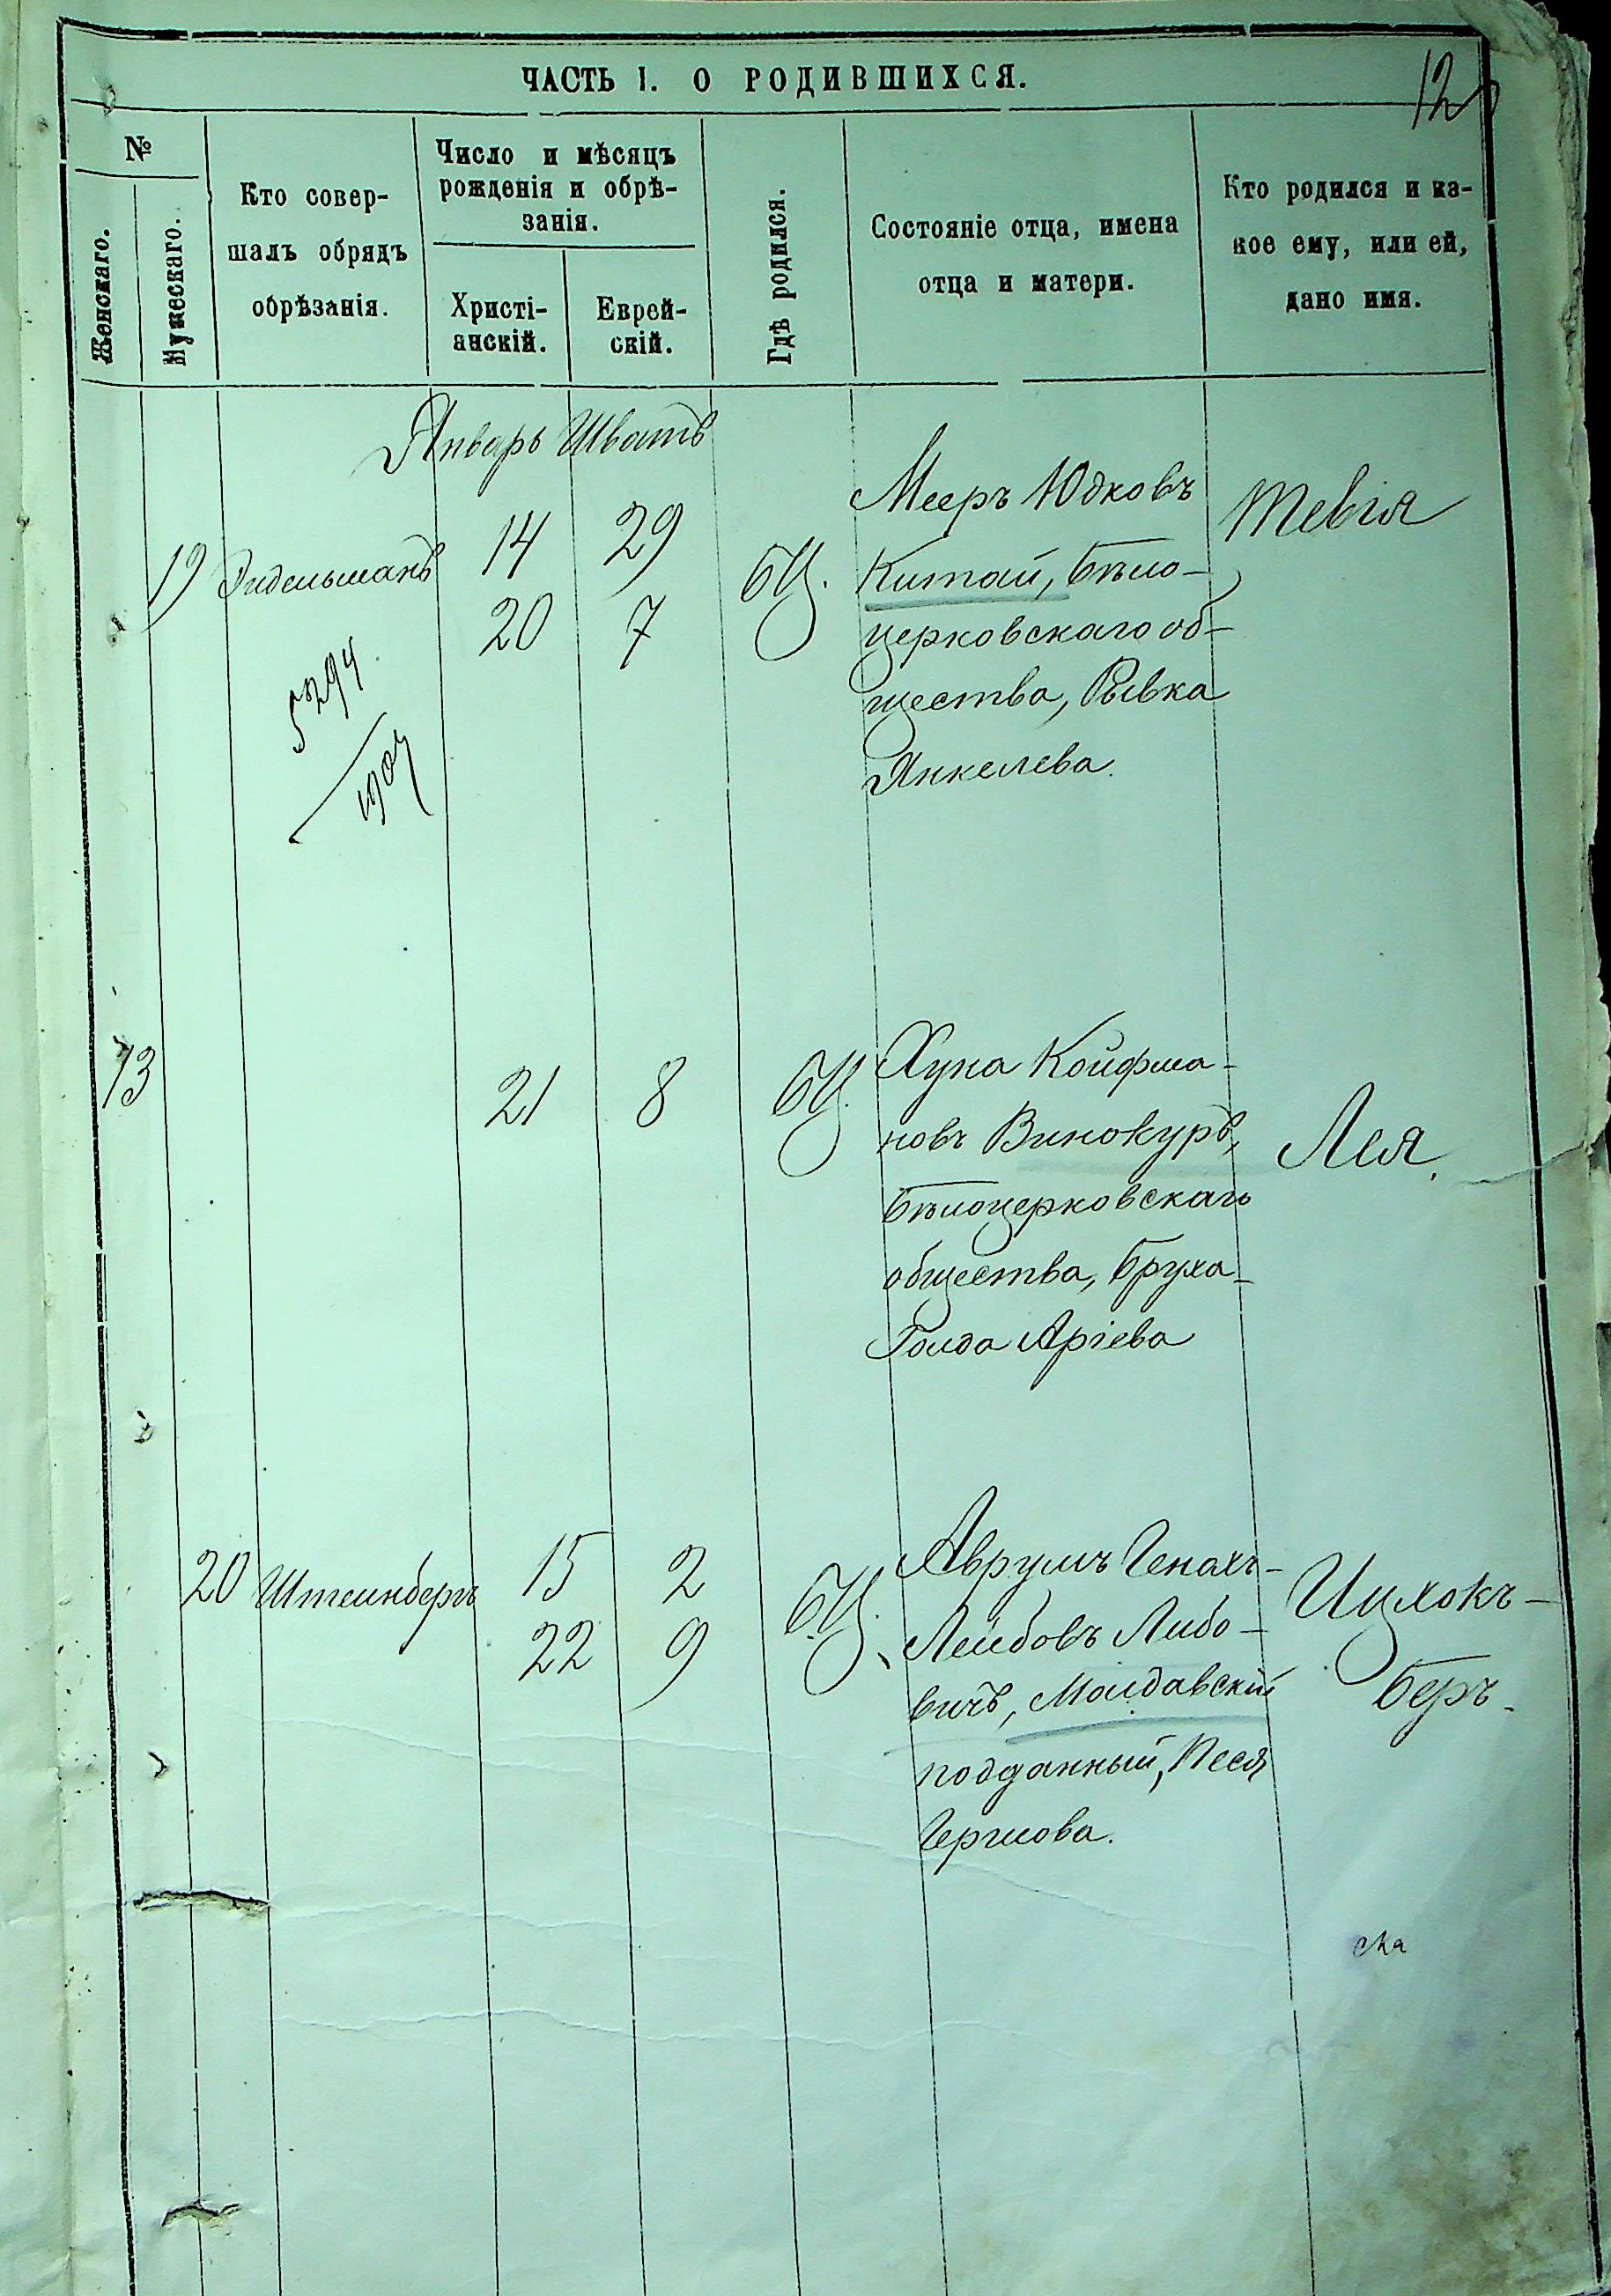 ЧАСТЬ I. О РОДИВШИХСЯ.
12
№
Женскаго.
Мужескаго.
Кто совер-
шалъ обрядъ
обрѣзанія.
Число и мѣсяцъ
рожденія и обрѣ-
занія.
Христі-
анскій.
Еврей-
скій.
Гдѣ родился.
Состояніе отца, имена
отца и матери.
Кто родился и ка-
кое ему, или ей,
дано имя.
Январь Шватъ
19 Эидельманъ 14 29 БЦ.
20 7
Мееръ Юдковъ
Китай, Бѣло-
церковскаго об-
щества, Рывка
Янкелева.
Тевія
5294
1904
13 21 8 БЦ.
Хуна Койфма-
новъ Винокуръ,
Бѣлоцерковскаго
общества, Бруха-
Голда Аріева
Лея.
20 Штеинбергъ 15 2 БЦ.
22 9
Аврумъ Генахъ-
Лейбовъ Либо-
вичъ, Молдавскій
подданный, Песя
Гершова.
Ицхокъ-
Беръ.